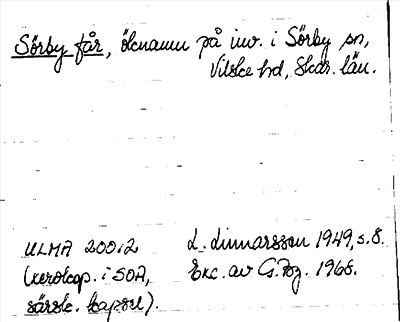 Sörby får, öknamn på inv. i Sörby sn,
Vilske hd, Skar. län.
ULMA 200:2 L. Linnarsson 1949, s. 8.
(xerokop. i SOA, Exc. av G. Bg. 1968.
särsk. kapsel).